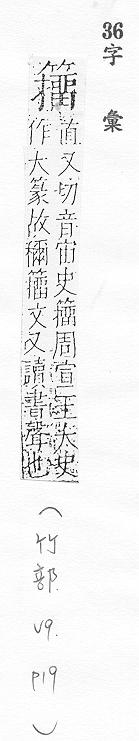 36字彙
籒直又切音宙史籒周宣王太史
作大篆故稱籒文又讀書聲也
(竹部. V9. P19)